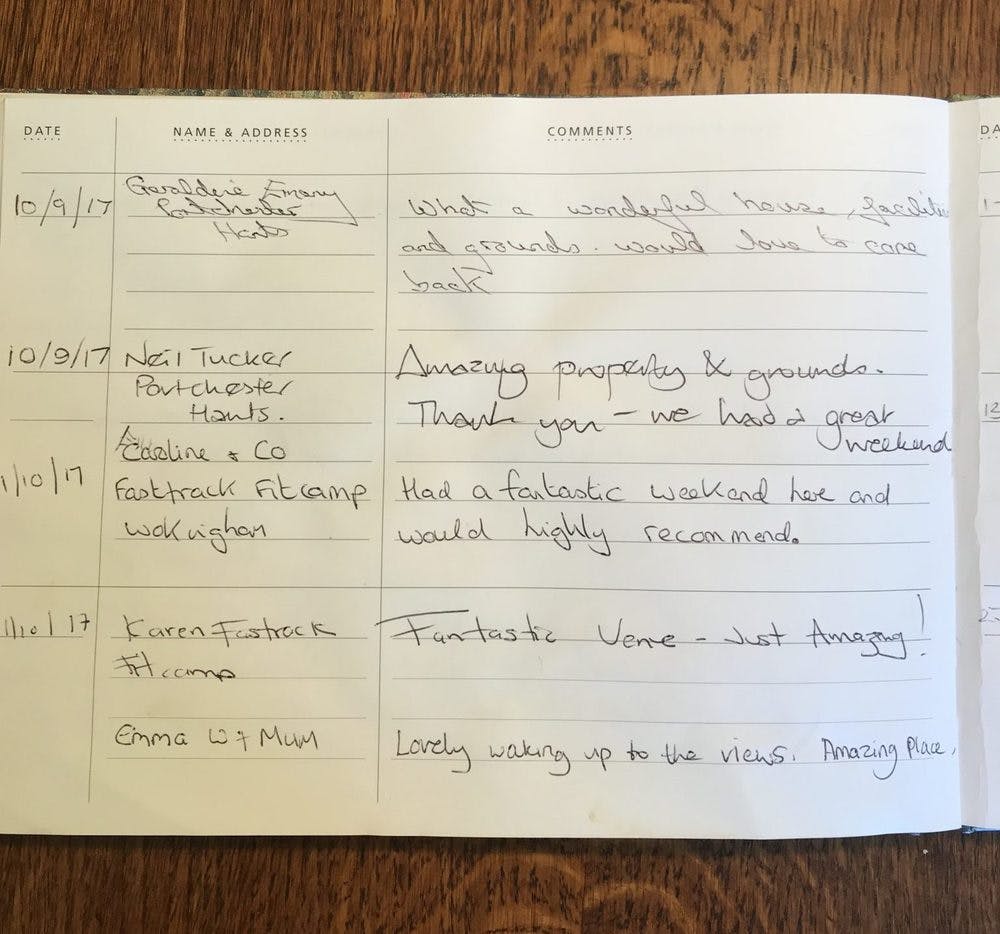 DATE NAME & ADDRESS COMMENTS DA
10/9/17 Geraldine Emery What a wonderful house, faciliti
Portchester and grounds. would love to come
Hants back
10/9/17 Neil Tucker Amazing property & grounds.
Portchester Thank you – we had a great
Hants. weekend
Caroline + Co
1/10/17 Fasttrack Fitcamp Had a fantastic weekend here and
Wokingham would highly recommend.
1/10/17 Karen Fastrack Fantastic Venue – Just Amazing!
Fitcamp
Emma W + Mum Lovely waking up to the views. Amazing Place,